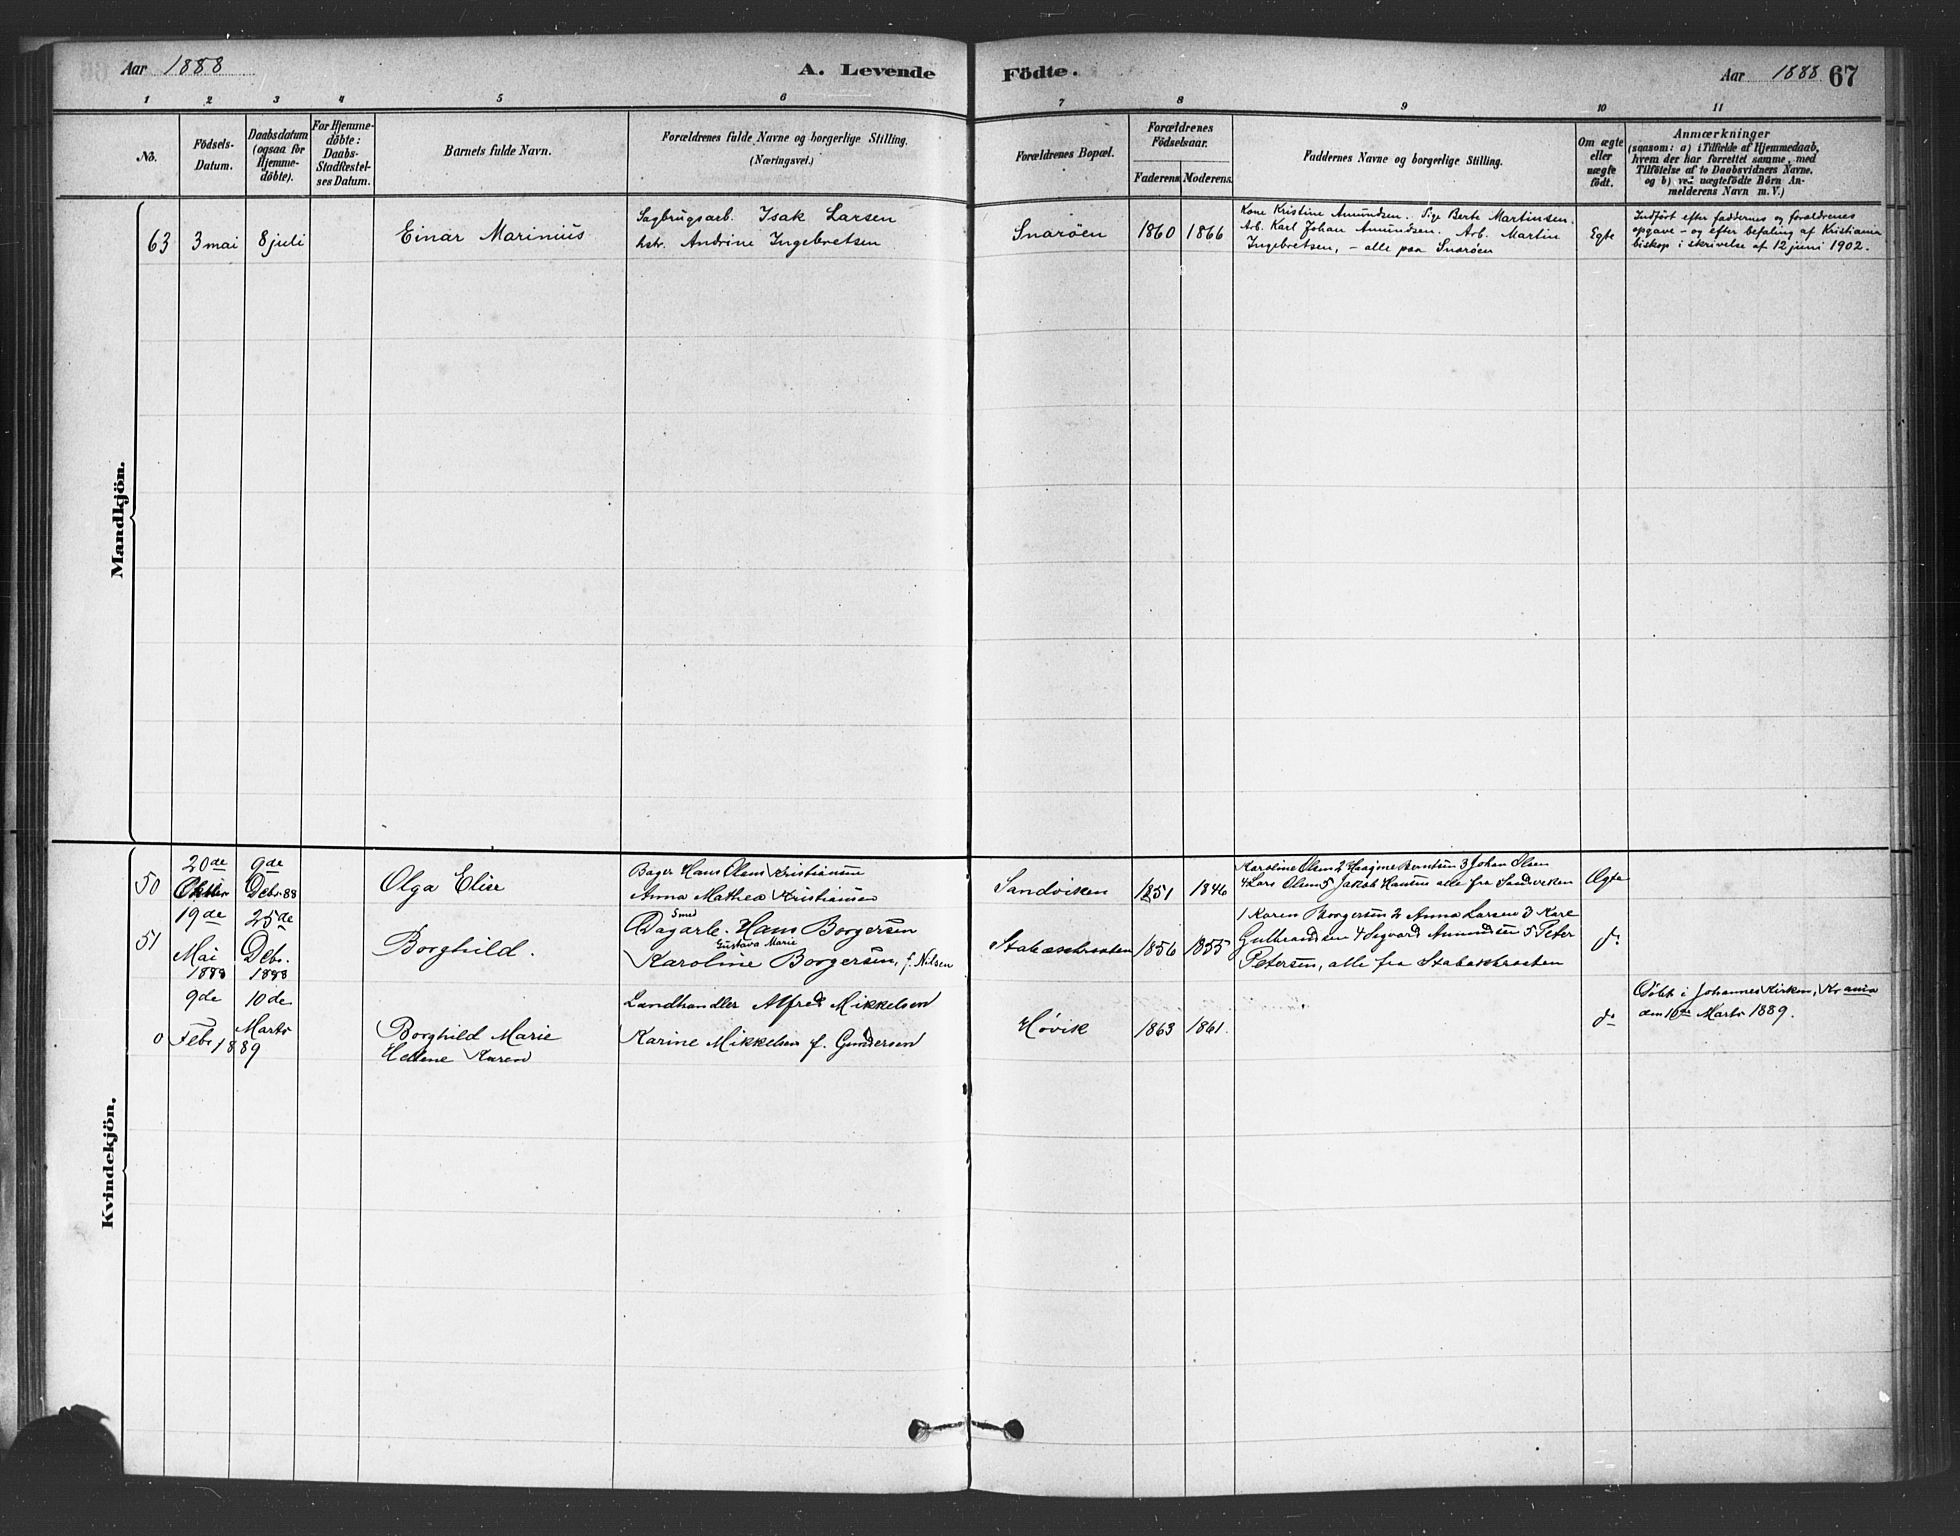 Aar 1888
A. Levende Födte.
Aar 1888 67
1 2 3 4 5 6 7 8 9 10 11
No.
Födsels-
Datum.
Daabsdatum
(ogsaa for
Hjemme-
döbte).
For Hjemme-
döbte:
Daabs-
Stadfæstel-
ses Datum.
Barnets fulde Navn.
Forældrenes fulde Navne og borgerlige Stilling.
(Næringsvei.)
Forældrenes Bopæl.
Forældrenes
Födselsaar.
Faderens. Moderens.
Faddernes Navne og borgerlige Stilling.
Om ægte
eller
uægte
födt.
Anmærkninger
(saasom: a) i Tilfælde af Hjemmedaab,
hvem der har forrettet samme, med
Tilföielse af to Daabsvidners Navne,
og b) ved uægtefödte Börn An-
melderens Navn m. V.)
Mandkjön.
63
3 mai
8 juli
Einar Marinius
Sagbrugsarb. Isak Larsen
hstr. Andrine Ingebretsen
Snarøen
1860
1866
Kone Kristine Amundsen. Pige Berte Martinsen.
Arb. Karl Johan Amundsen. Arb. Martin
Ingebretsen, – alle paa Snarøen
Egte
Indført efter faddernes og foræledrenes
opgave – og efter befaling af Kristiania
biskop i skrivelse af 12 juni 1902.
Kvindekjön.
50
20de
Oktbr
9de
Debr. 88
Olga Elise
Bager Hans Olaus Kristiansen
Anna Mathea Kristiansen
Sandviken
1851
1846
Karoline Olsen 2 Berntsen 3 Johan Olsen
4 Lars Olsen 5 Jakob Hansen alle fra Sandviken
Ægte
51
19de
Mai
1888
25de
Debr.
1888
Borghild.
Smed
Dagarb. Hans Borgersen
Gustava Marie
Karoline Borgersen, f. Nilsen
Stabækbraaten
1856
1855
1 Karen Borgersen 2 Anna Larsen 3 Kare
Gulbrandsen 4 Sigvard Amundsen 5 Peter
Petersen, alle fra Stabækbraaten
do
0
9de
Febr 1889
10de
Marts
Borghild Marie
Hellene Karen
Landhandler Alfred Mikkelsen
Karine Mikkelsen f. Gundersen
Høvik
1863
1861
do
Døbt i Johannes Kirken, Krania
den 10de Marts 1889.